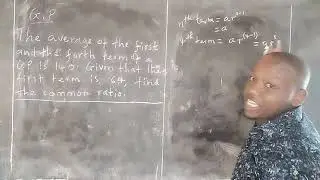 G.P
The average of the first
and the forth term of a
GP is 140. Given that the
first term is 64, find
the common ratio.
nth term = ar^(n-1)
= a
4th term = ar^(4-1) =